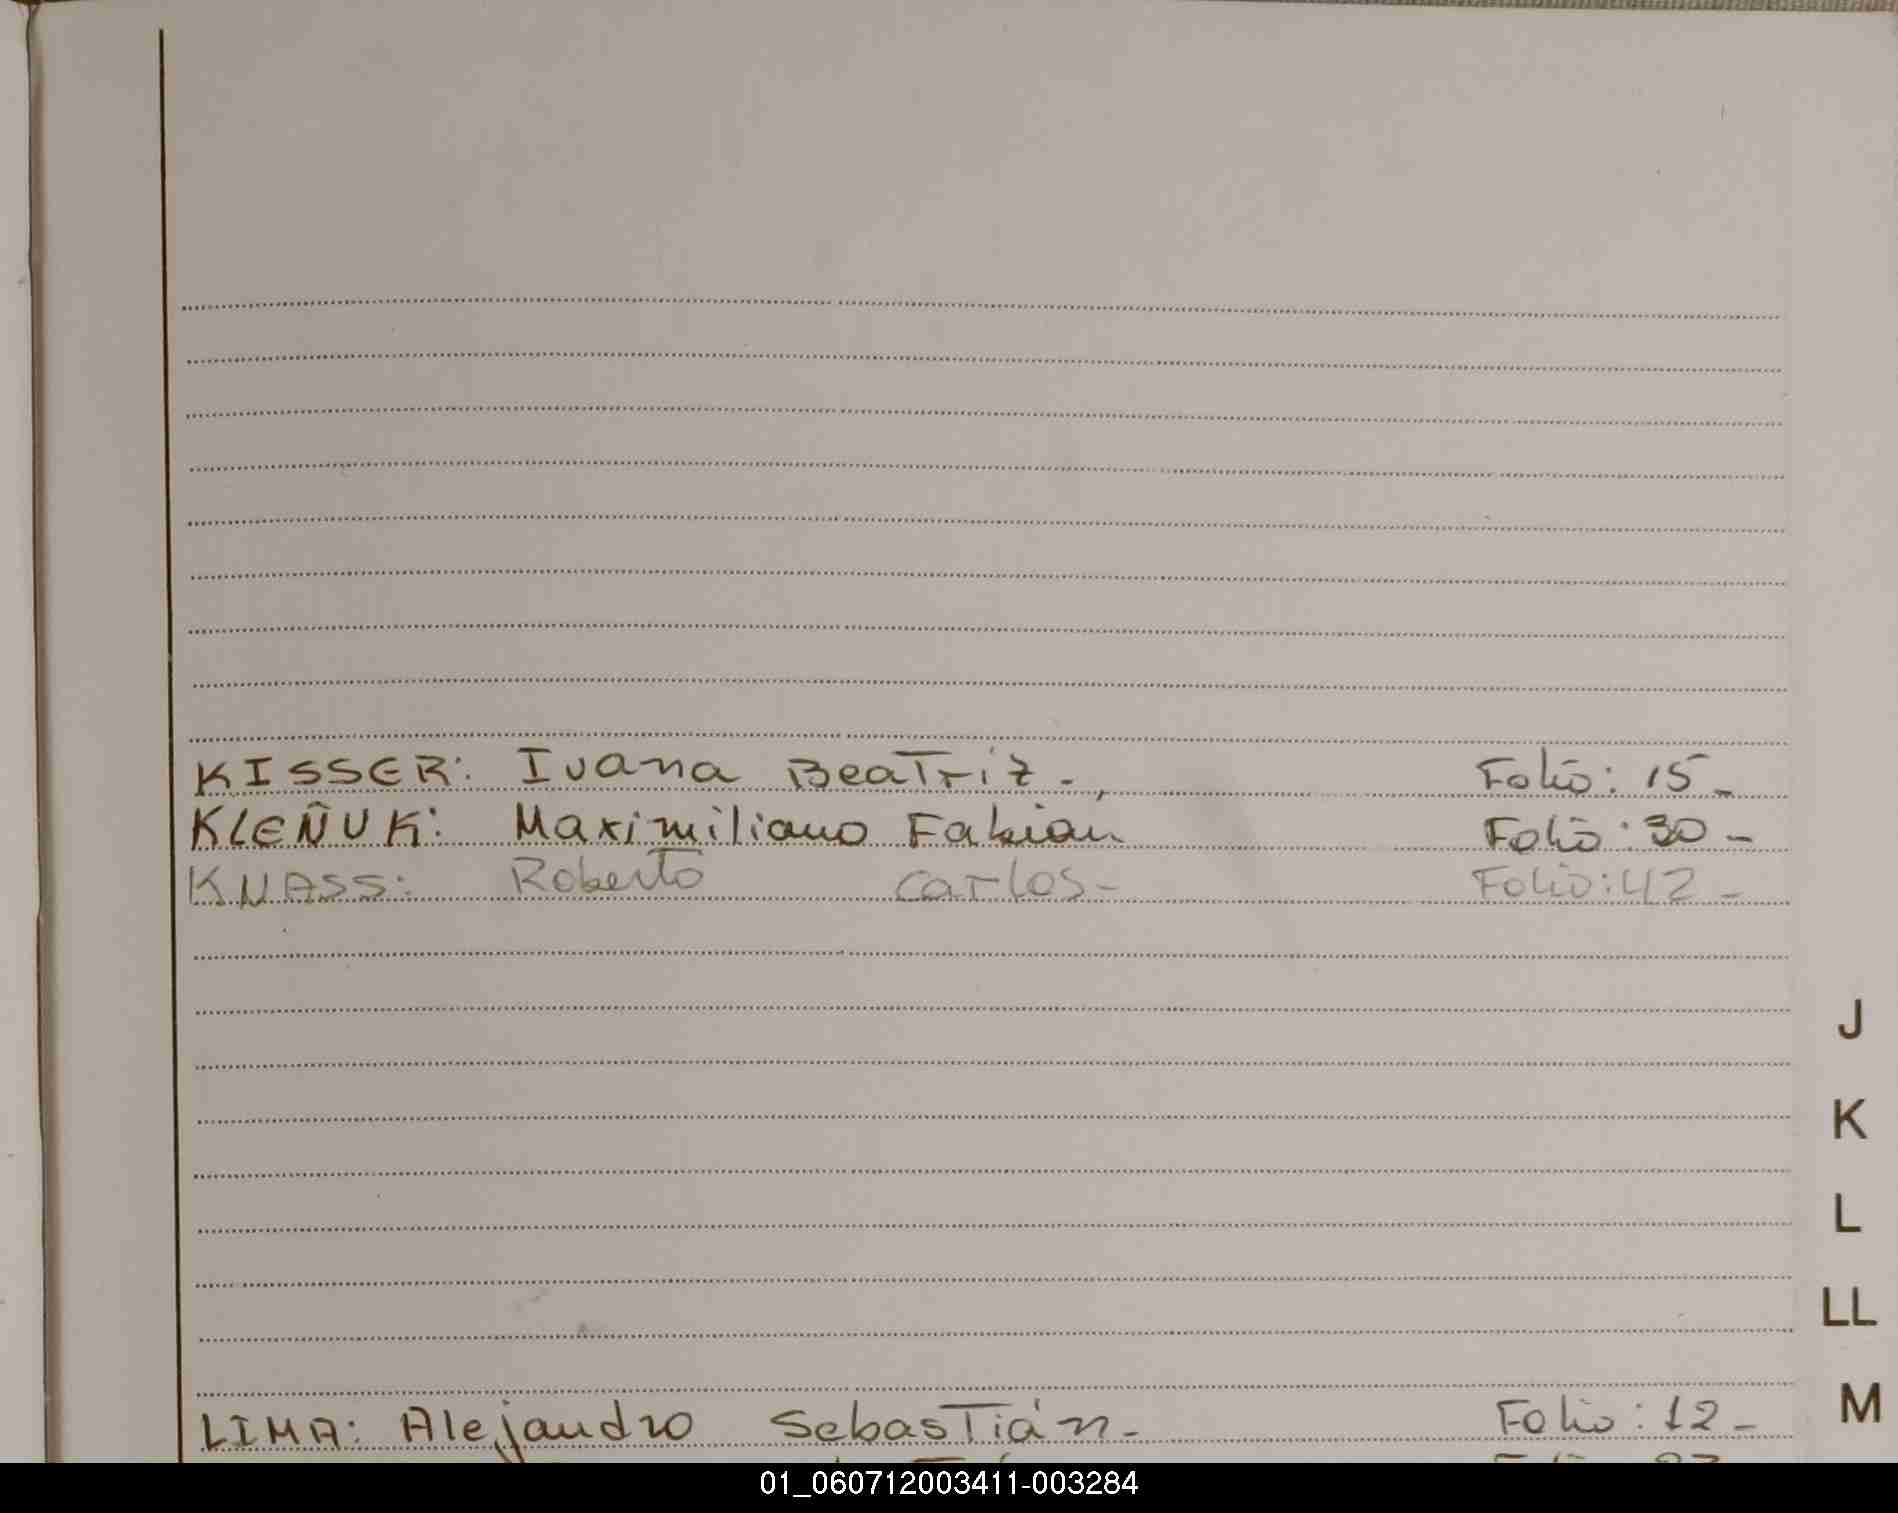 KISSER: Ivana Beatriz-, Folio: 15-
KLEÑUK: Maximiliano Fabian Folio: 30-
KNASS: Roberto Carlos- Folio: 42-
J
K
L
LL
LIMA: Alejandro Sebastián- Folio: 12-
M
01_060712003411-003284